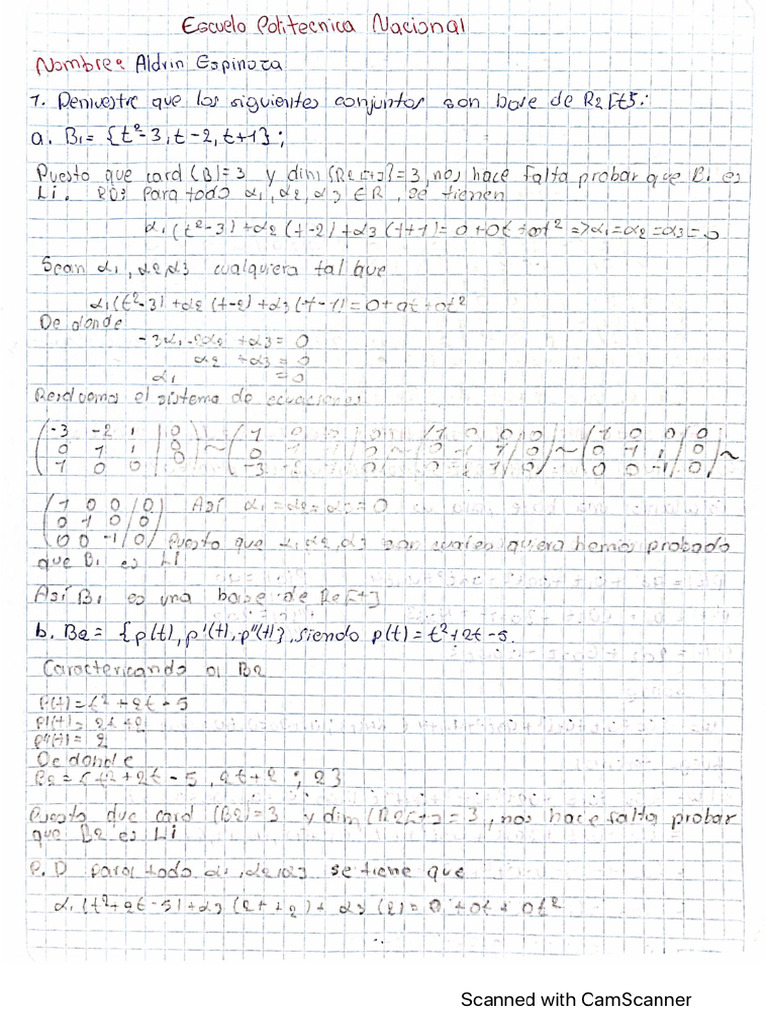 Escuela Politecnica Nacional
Nombre: Aldrin Espinoza
1. Demuestre que los siguientes conjuntos son base de R2[t]:
a. B1 = {t²-3, t-2, t+1};
Puesto que card (B)=3 y dim (R2[t])=3, nos hace falta probar que B1 es
Li. P.D: Para todo α1, α2, α3 ∈ R, se tienen
α1(t²-3) + α2(t-2) + α3(t+1) = 0+0t+0t² => α1=α2=α3=0
Sean α1, α2, α3 cualquiera tal que
α1(t²-3) + α2(t-2) + α3(t-1) = 0+0t+0t²
De donde
-3α1 -2α2 +α3 = 0
α2 +α3 = 0
α1 = 0
Resolvemo el sistema de ecuaciones
(-3 -2 1 | 0) (1 0 0 | 0) (1 0 0 | 0) (1 0 0 | 0)
(0 1 1 | 0) ~ (0 1 1 | 0) ~ (0 1 1 | 0) ~ (0 1 1 | 0) ~
(1 0 0 | 0) (-3 -2 1 | 0) (0 -2 1 | 0) (0 0 -1 | 0)
(1 0 0 | 0) Así α1=α2=α3=0
(0 1 0 | 0)
(0 0 -1 | 0) Puesto que α1, α2, α3 son cualesquiera hemos probado
que B1 es Li
Así B1 es una base de R2[t]
b. B2 = {p(t), p'(t), p''(t)}, siendo p(t) = t²+2t-5.
Caractericando a B2
P(t) = t²+2t-5
p'(t) = 2t+2
p''(t) = 2
De donde
B2 = {t²+2t-5, 2t+2; 2}
Puesto que card (B2)=3 y dim (R2[t])=3, nos hace falta probar
que B2 es Li
P.D para todo α1, α2, α3 se tiene que
α1(t²+2t-5) + α2(2t+2) + α3(2) = 0+0t+0t²
Scanned with CamScanner